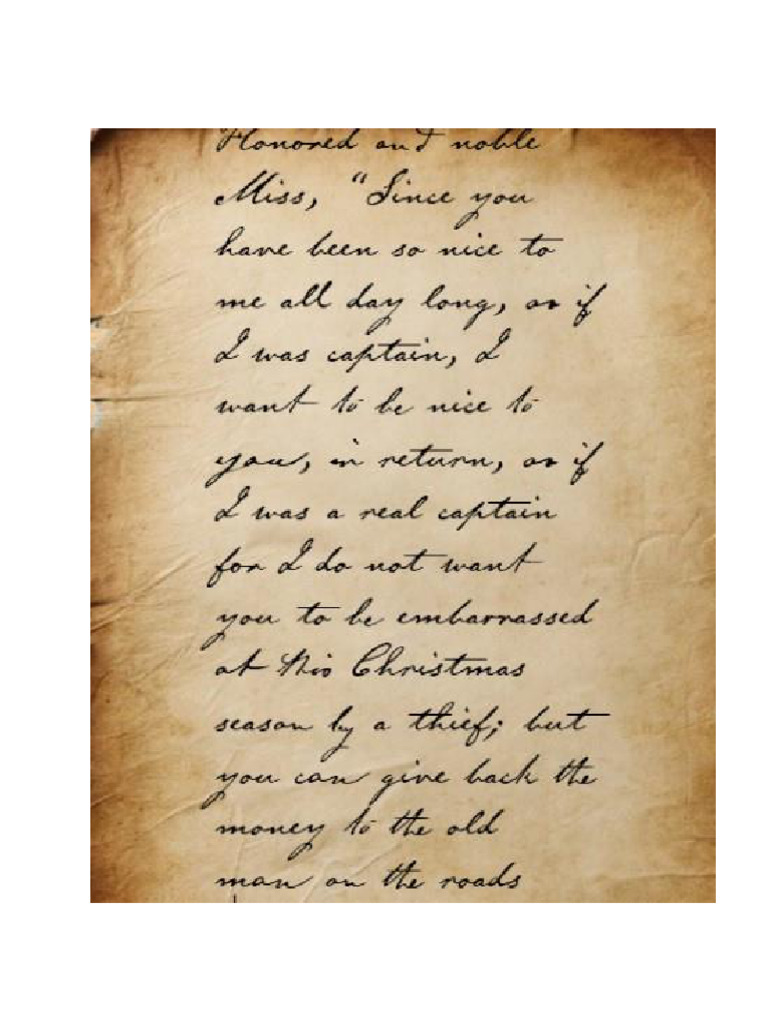 Honored and noble
Miss, "Since you
have been so nice to
me all day long, as if
I was captain, I
want to be nice to
you, in return, as if
I was a real captain
for I do not want
you to be embarrassed
at this Christmas
season by a thief; but
you can give back the
money to the old
man on the roads